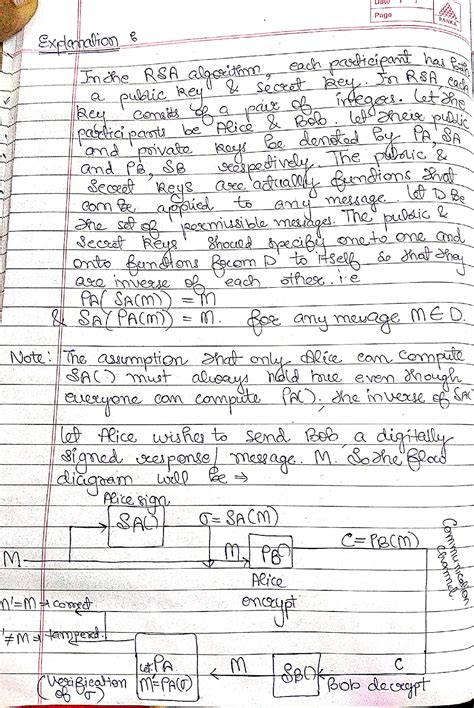 Date
Page
Explanation :
In the RSA algorithm, each participant has both
a public key & secret key. In RSA, each
key consits of a pair of integers. Let the
participants be Alice & Bob. Let their public
and private keys be denoted by PA, SA
and PB, SB respectively. The public &
secret keys are actually functions that
can be applied to any message. Let D be
the set of permissible messages. The public &
secret keys should specify one to one and
onto functions from D to itself so that they
are inverse of each other. i.e
PA(SA(M)) = M
& SA(PA(M)) = M. for any message M∈D.
Note: The assumption that only Alice can compute
SA(.) must always hold true even though
everyone can compute PA(), the inverse of SA
Let Alice wishes to send Bob, a digitally
signed response/message. M. So the flow
diagram will be ⇒
Alice sign
SA() σ = SA(M)
M M PB() C = PB(M)
Alice
encrypt
Communication
channel
M'=M → correct
'≠M → tampered.
(verification
of σ)
let PA
M'=PA(σ)
M
SB()
C
Bob decrypt